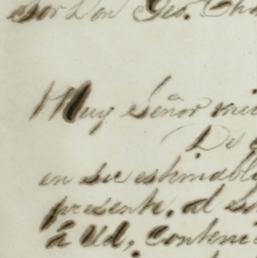 Don Geo. Cha
Muy Señor mio
De
en su estimable
presente, al
á Ud, conteni